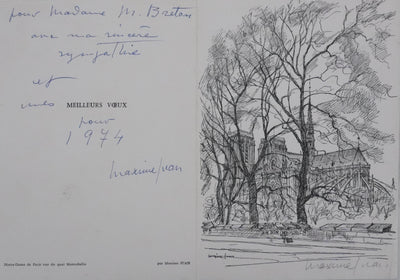 pour Madame M. Breton
avec ma sincère
sympathie
et
mes MEILLEURS VŒUX
pour
1974
Maxime Juan
Notre-Dame de Paris vue du quai Montebello
par Maxime JUAN
Maxime Juan